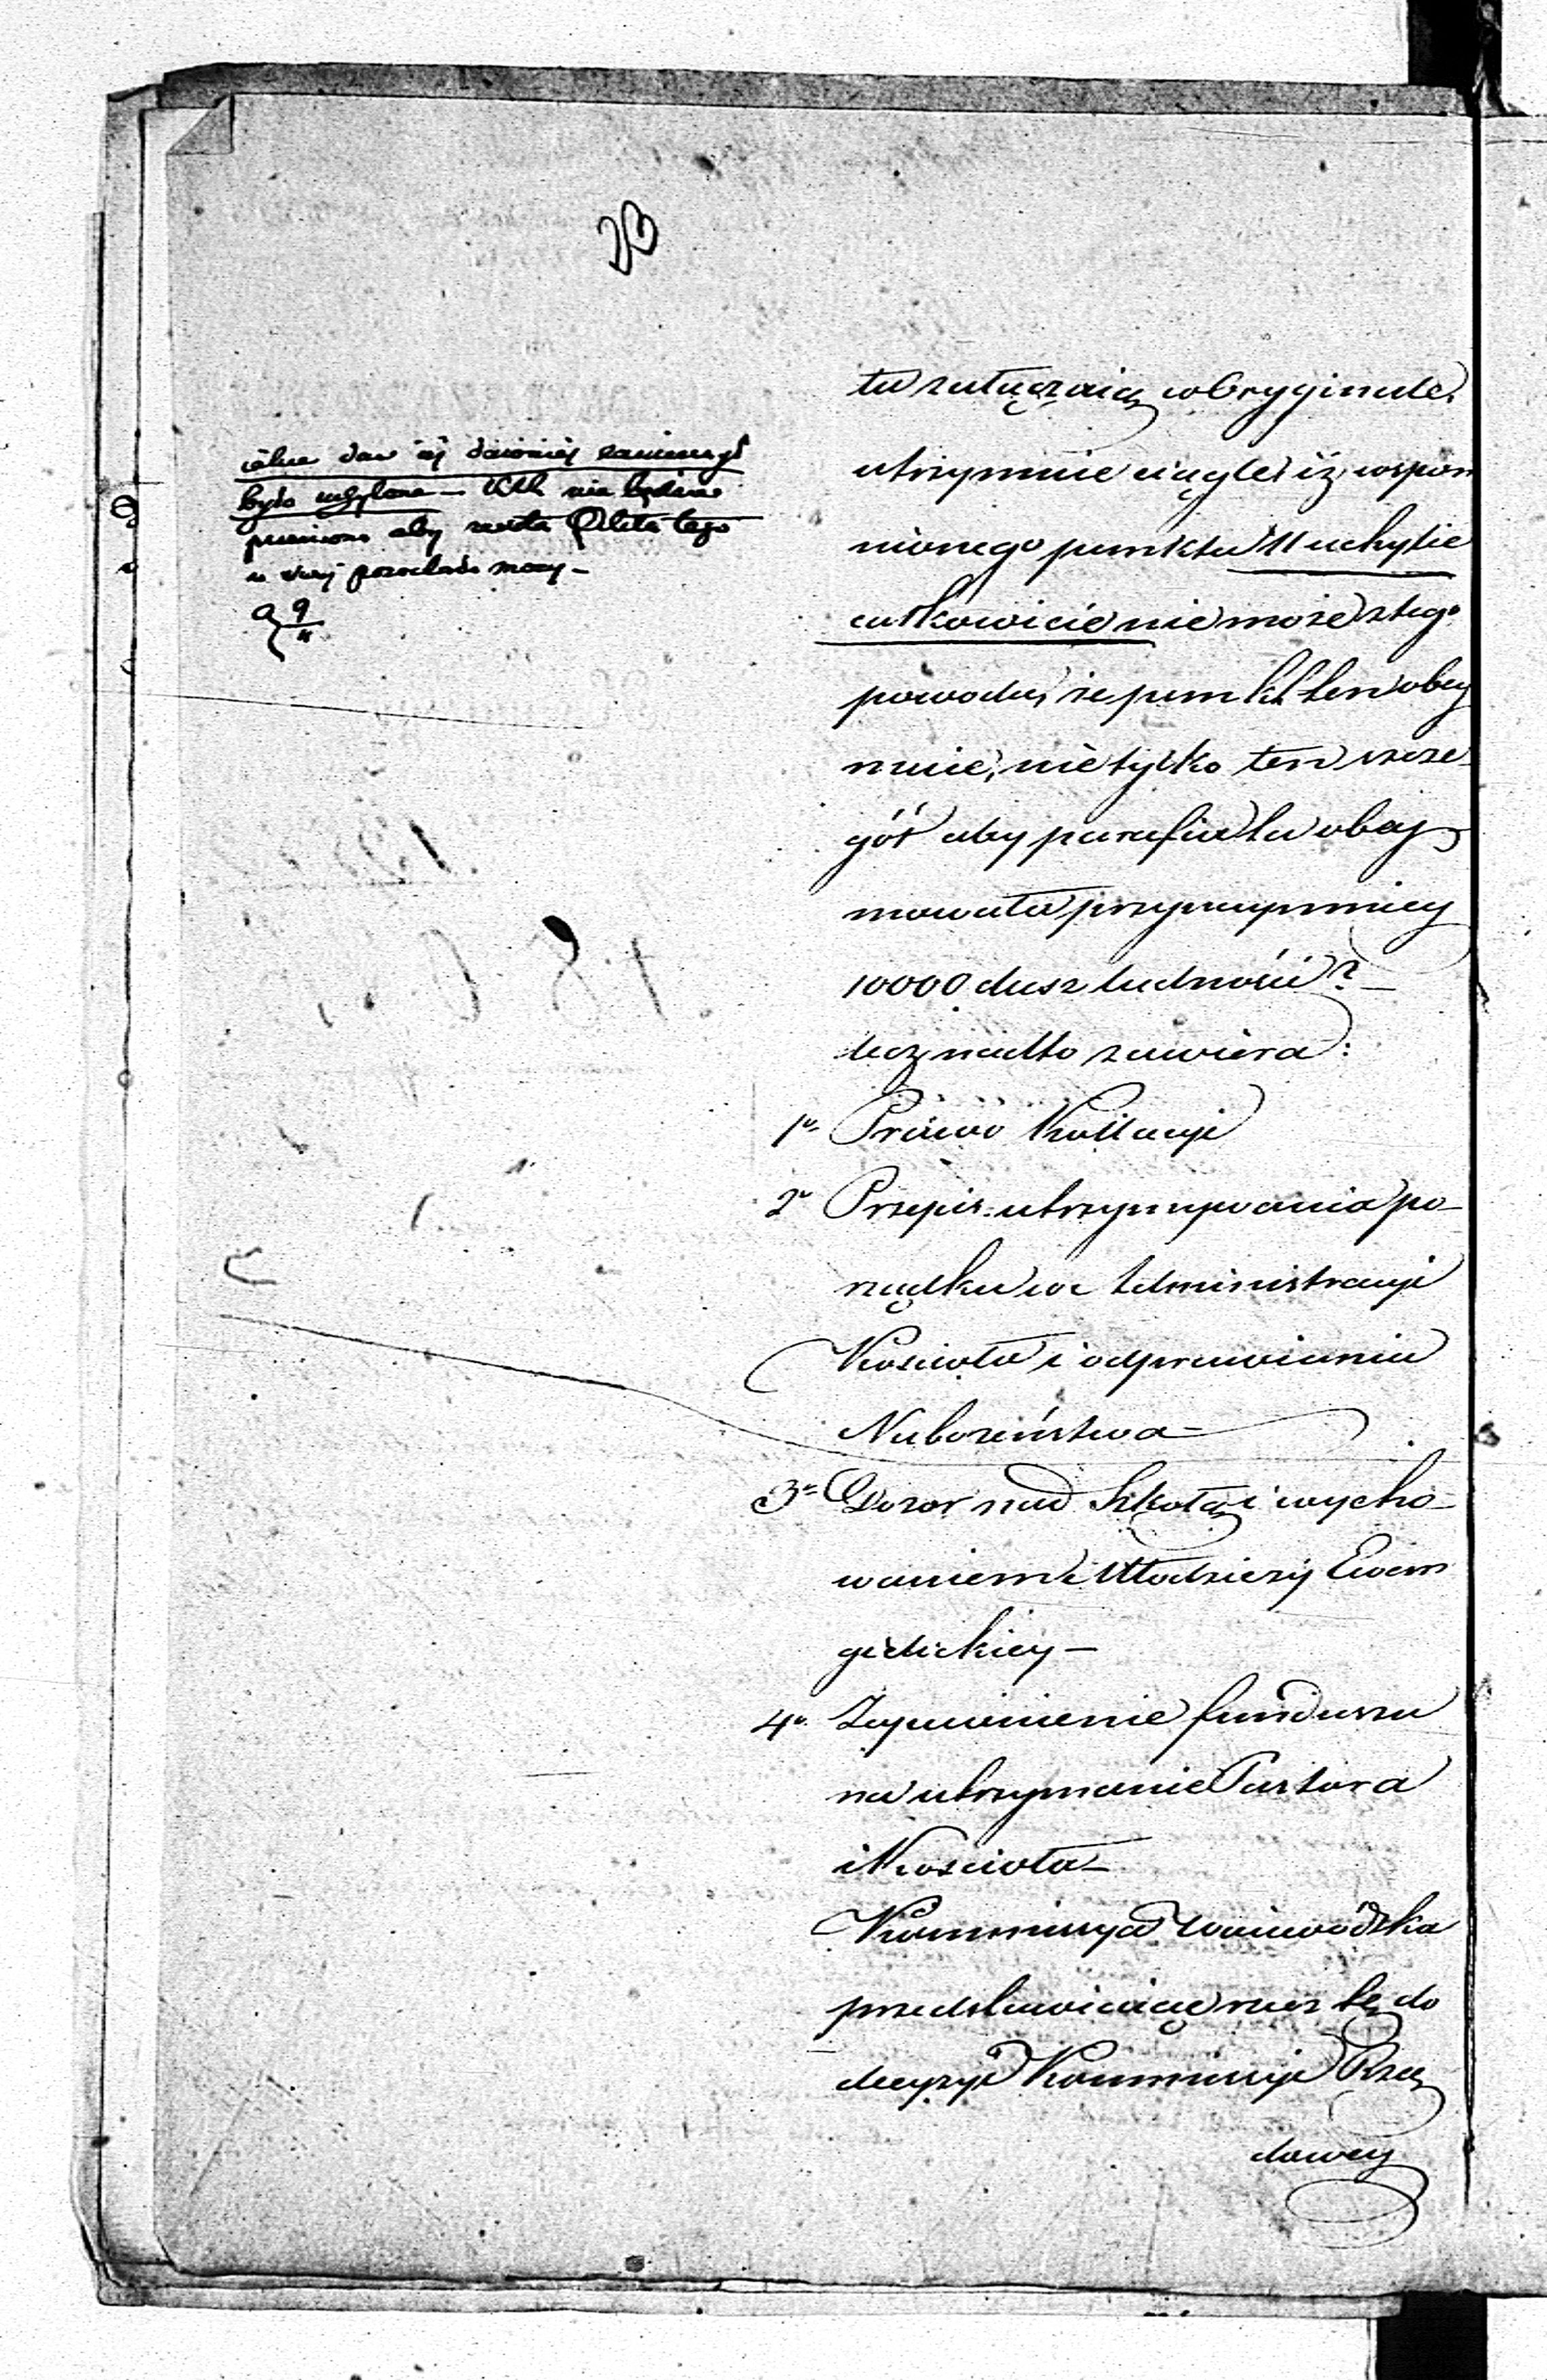 było uchylone — nie będzie
aby reszta tego
w swej mocy —
9/4
tu załączaią w Oryginale,
utrzymuie ciągle, iż wspom
nionego punktu 11 uchylić
całkowicie nie może z tego
powodu, że punkt ten obey
muie, nie tylko ten szcze
gół aby parafia ta obey
mowała przynaymniey
10000 dusz ludności? —
lecz nadto zawiera:
1o Prawo Kollacyi
2o Przepis utrzymywania po-
rządku w Administracyi
Kościoła i odprawianiu
Nabożeństwa —
3o Dozor nad Szkołą i wycho-
waniem Młodzieży Ewan
gielickiey —
4o Zapewnienie funduszu
na utrzymanie Pastora
i Kościoła —
Kommissya Woiewódzka
przedstawiaiąc rzecz tę do
decyzyi Kommissyi Rzą
dowey